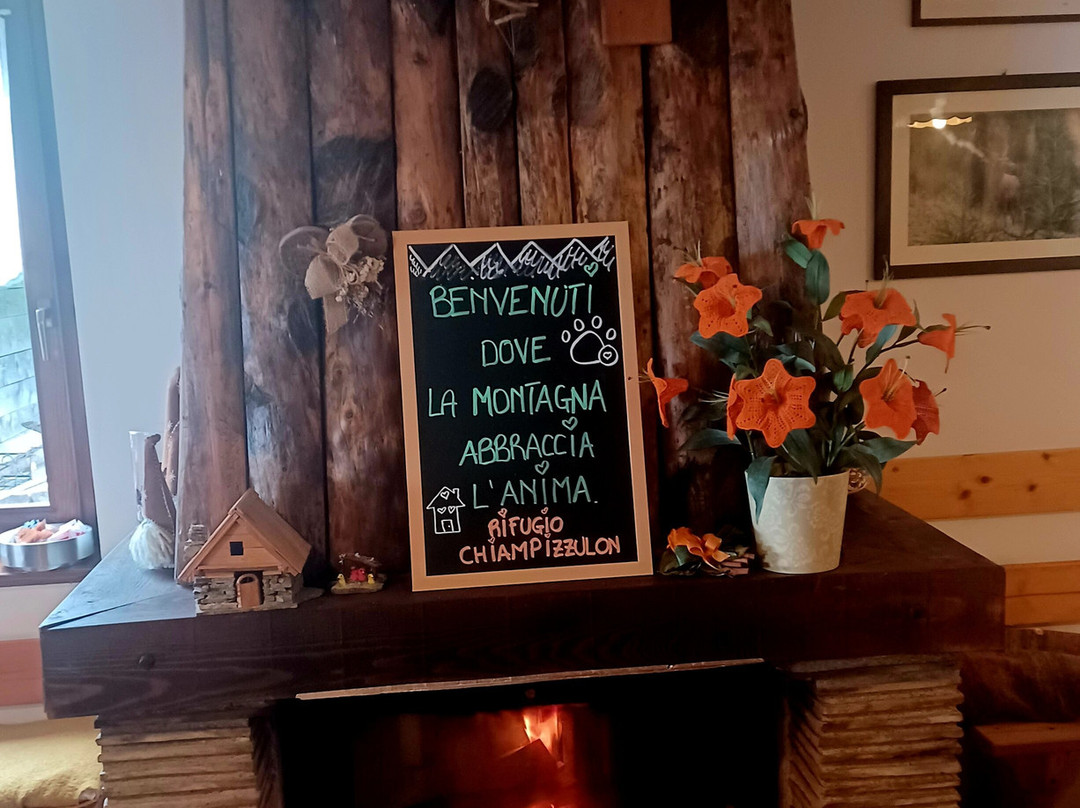 BENVENUTI
DOVE
LA MONTAGNA
ABBRACCIA
L'ANIMA.
RIFUGIO
CHIAMPIZZULON